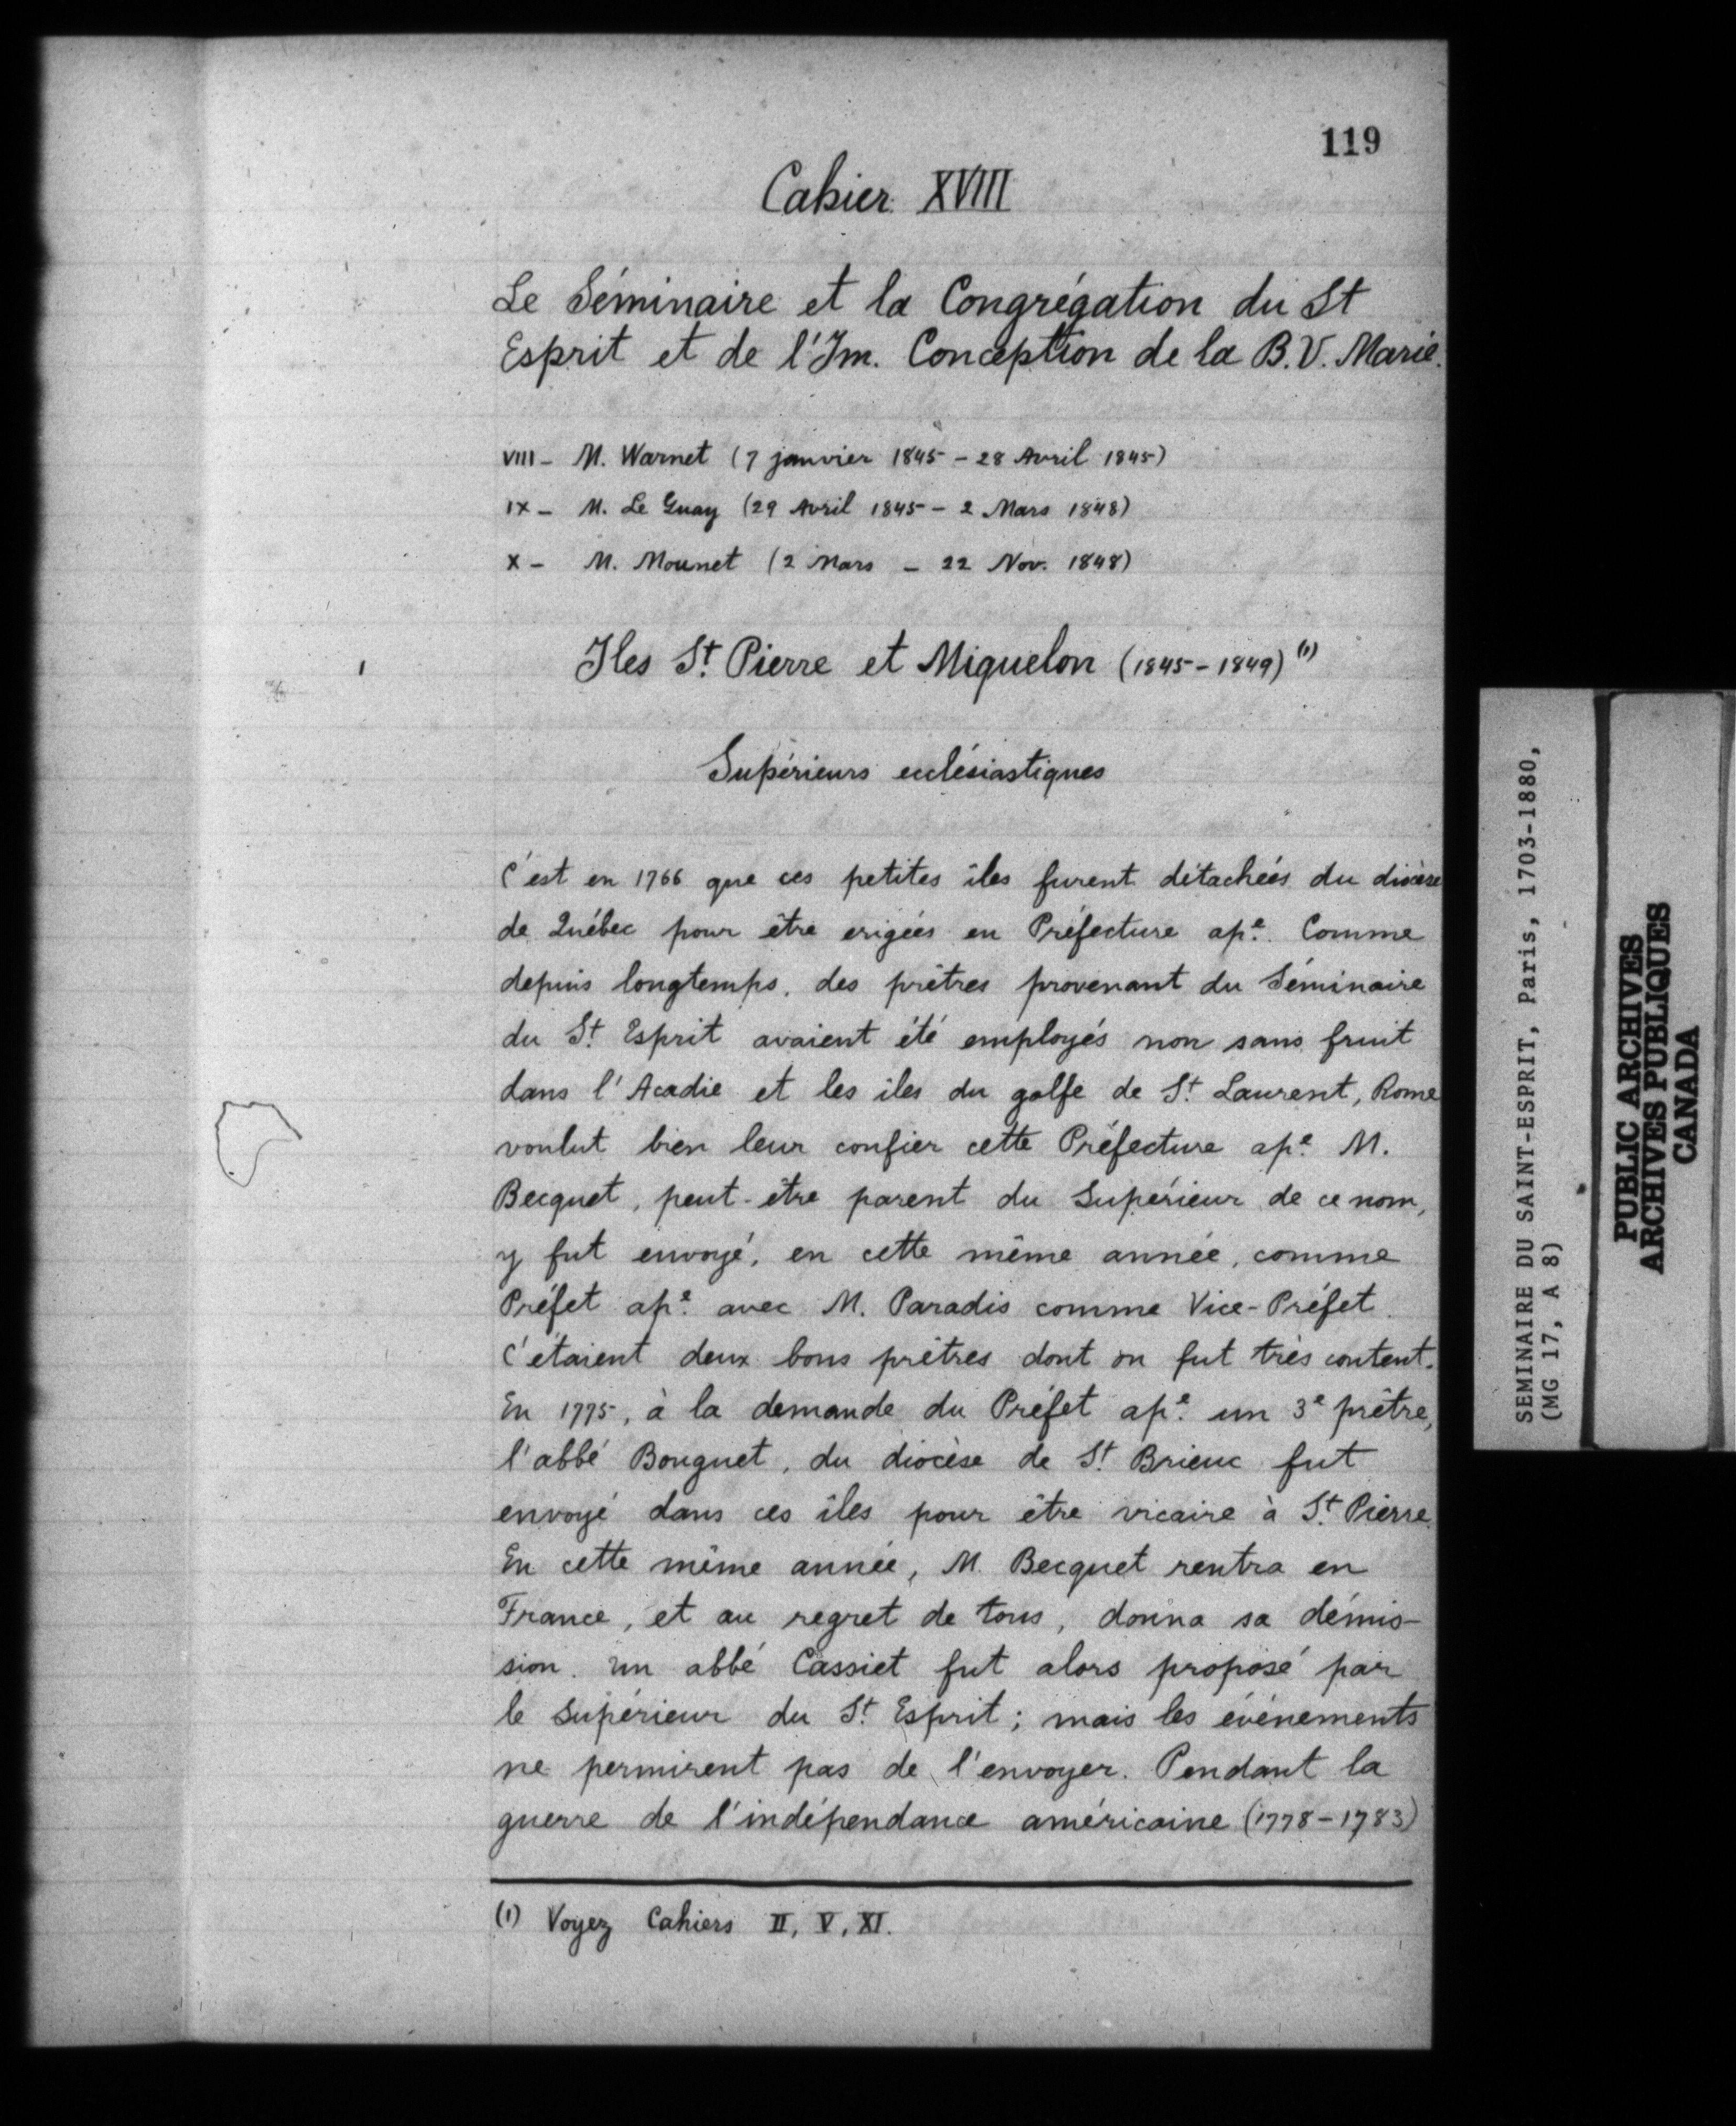 119
Cahier XVIII
Le Séminaire et la Congrégation du St
Esprit et de l'Im. Conception de la B.V. Marie.
VIII - M. Warnet (7 janvier 1845 - 28 Avril 1845)
IX - M. Le Guay (29 Avril 1845 - 2 Mars 1848)
X - M. Mounet (2 Mars - 22 Nov. 1848)
Iles St Pierre et Miquelon (1845-1849) (1)
Supérieurs ecclésiastiques
C'est en 1766 que ces petites îles furent détachées du diocèse
de Québec pour être erigées en Préfecture ape. Comme
depuis longtemps, des prêtres provenant du Séminaire
du St Esprit avaient été employés non sans fruit
dans l'Acadie et les îles du golfe de St Laurent, Rome
voulut bien leur confier cette Préfecture ape. M.
Becquet, peut-être parent du Supérieur de ce nom,
y fut envoyé, en cette même année, comme
Préfet ape. avec M. Paradis comme Vice-Préfet.
C'étaient deux bons prêtres dont on fut très content.
En 1775, à la demande du Préfet ape. un 3e prêtre,
l'abbé Bouguet, du diocèse de St Brieuc fut
envoyé dans ces îles pour être vicaire à St Pierre.
En cette même année, M. Becquet rentra en
France, et au regret de tous, donna sa démis-
sion. Un abbé Cassiet fut alors proposé par
le Supérieur du St Esprit ; mais les événements
ne permirent pas de l'envoyer. Pendant la
guerre de l'indépendance américaine (1778-1783)
(1) Voyez Cahiers II, V, XI.
SEMINAIRE DU SAINT-ESPRIT, Paris, 1703-1880,
(MG 17, A 8)
PUBLIC ARCHIVES
ARCHIVES PUBLIQUES
CANADA